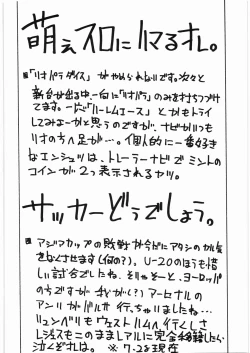 萌えスロにハマるオレ。
■「リオパラダイス」がやめられないです。次々と
新台が出る中、一向に「リオパラ」のみを打ちつづけ
てます。一応「ハーレムエース」とかもトライ
してみよーかと思うのですが、ナビがいつも
リオの方へ足が…。個人的に一番好き
なエンシュツは、トレーラーナビでミントの
コインが2つ表示されるヤツ。
サッカーどうでしょう。
■アジアカップの敗戦が今だにアタシのカル気
をなくさせます(何の?)。U-20のほうも惜し
い試合でしたね。そりゃそーと、ヨーロッパ
のちですが
アーセナルの
アンリがバルサ行っちゃいましたね…
リュンベリもウェストハムへ行くしさ
レジェスもこのままアトレに完全移籍したら
泣くぞオレは。 ※7.28現在